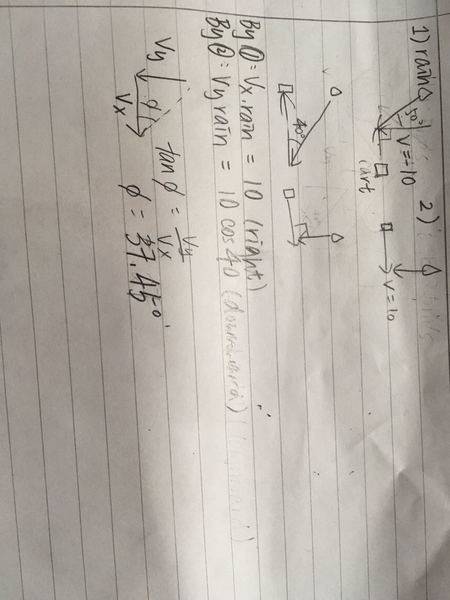 1) rain 40° V=-10 2) V=10
cart
40°
By ①: Vx.rain = 10 (right)
By ②: Vy rain = 10 cos 40 (downward)
Vy ϕ tan ϕ = Vy/Vx
Vx ϕ = 37.45°.